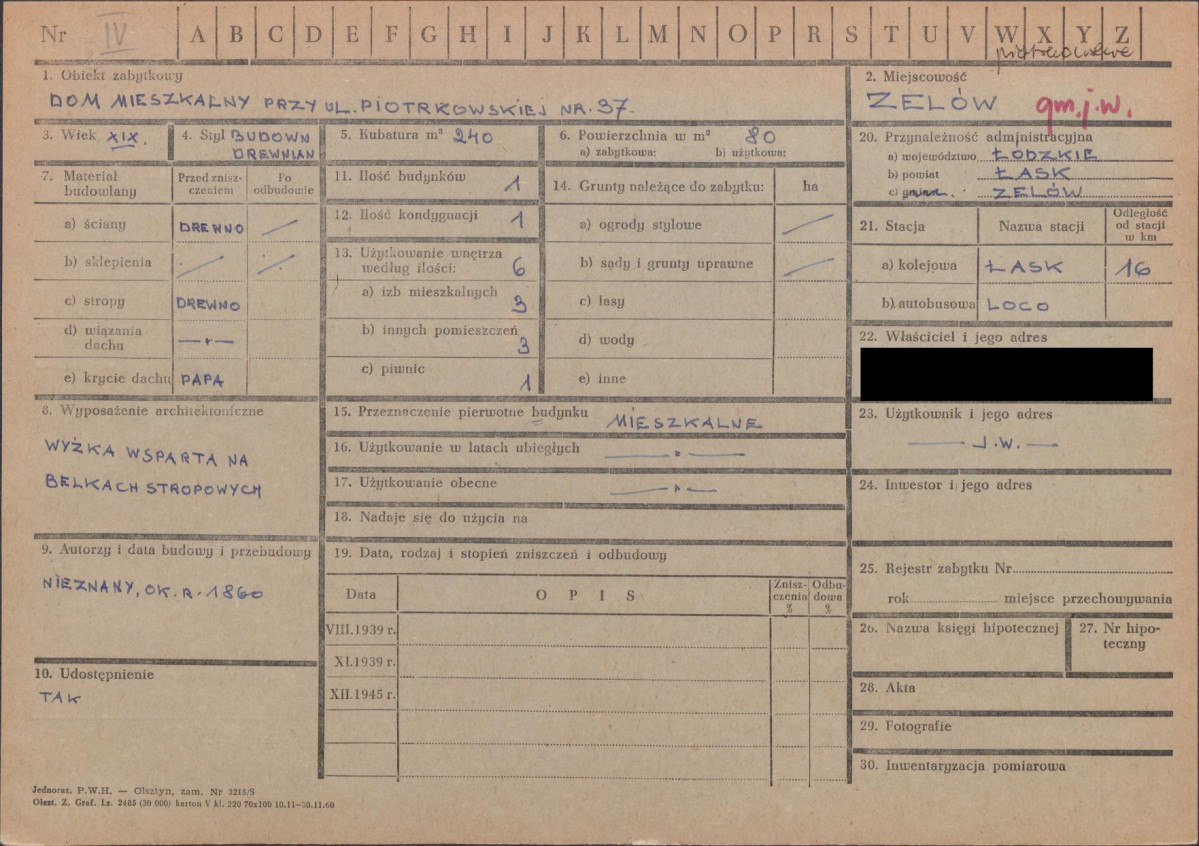 Nr IV A B C D E F G H I J K L M N O P R S T U V W X Y Z
piotrkowskie
1. Obiekt zabytkowy
DOM MIESZKALNY PRZY UL. PIOTRKOWSKIEJ NR. 37.
2. Miejscowość
ZELÓW gm. j.w.
3. Wiek XIX.
4. Styl BUDOWN
DREWNIAN
5. Kubatura m³ 240
6. Powierzchnia w m² 80
a) zabytkowa: b) użytkowa:
7. Materiał
budowlany
Przed znisz-
czeniem
Po
odbudowie
a) ściany DREWNO —
b) sklepienia — —
c) stropy DREWNO
d) wiązania
dachu —„—
e) krycie dachu PAPA
8. Wyposażenie architektoniczne
WYŻKA WSPARTA NA
BELKACH STROPOWYCH
9. Autorzy i data budowy i przebudowy
NIEZNANY, OK. R. 1860
10. Udostępnienie
TAK
11. Ilość budynków 1
12. Ilość kondygnacji 1
13. Użytkowanie wnętrza
według ilości: 6
a) izb mieszkalnych 3
b) innych pomieszczeń 3
c) piwnic 1
14. Grunty należące do zabytku: ha
a) ogrody stylowe —
b) sady i grunty uprawne —
c) lasy
d) wody
e) inne
15. Przeznaczenie pierwotne budynku MIESZKALNE
16. Użytkowanie w latach ubiegłych —„—
17. Użytkowanie obecne —„—
18. Nadaje się do użycia na
19. Data, rodzaj i stopień zniszczeń i odbudowy
Data OPIS Znisz-
czenia
% Odbu-
dowa
%
VIII.1939 r.
XI.1939 r.
XII.1945 r.
20. Przynależność administracyjna
a) województwo ŁODZKIE
b) powiat ŁASK
c) gmina ZELÓW
21. Stacja Nazwa stacji Odległość
od stacji
w km
a) kolejowa ŁASK 16
b) autobusowa LOCO
22. Właściciel i jego adres
23. Użytkownik i jego adres
— J.W. —
24. Inwestor i jego adres
25. Rejestr zabytku Nr
rok miejsce przechowywania
26. Nazwa księgi hipotecznej
27. Nr hipo-
teczny
28. Akta
29. Fotografie
30. Inwentaryzacja pomiarowa
Jednoraz. P.W.H. — Olsztyn, zam. Nr 3215/S
Olszt. Z. Graf. Lz. 2485 (30 000) karton V kl. 220 70x100 10.11—30.11.60